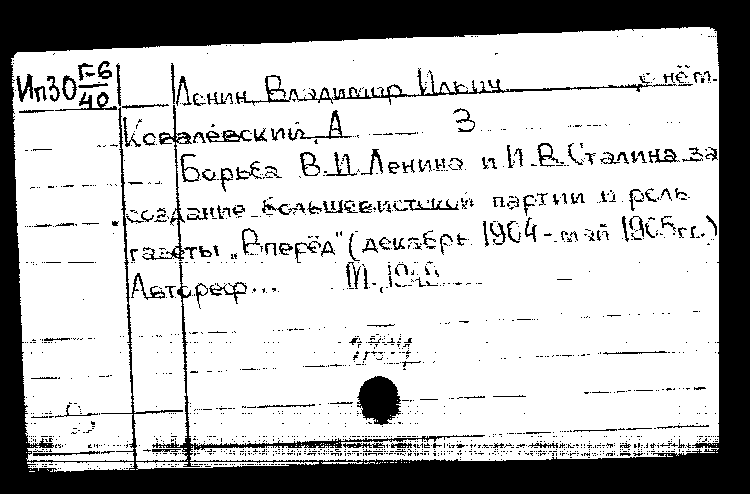 Ип30 Г-6/40
Ленин, Владимир Ильич, о нём.
Ковалевский, А З
Борьба В.И.Ленина и И.В.Сталина за
создание большевистской партии и роль
газеты „Вперёд" (декабрь 1904 - май 1905гг.)
Автореф... М.,